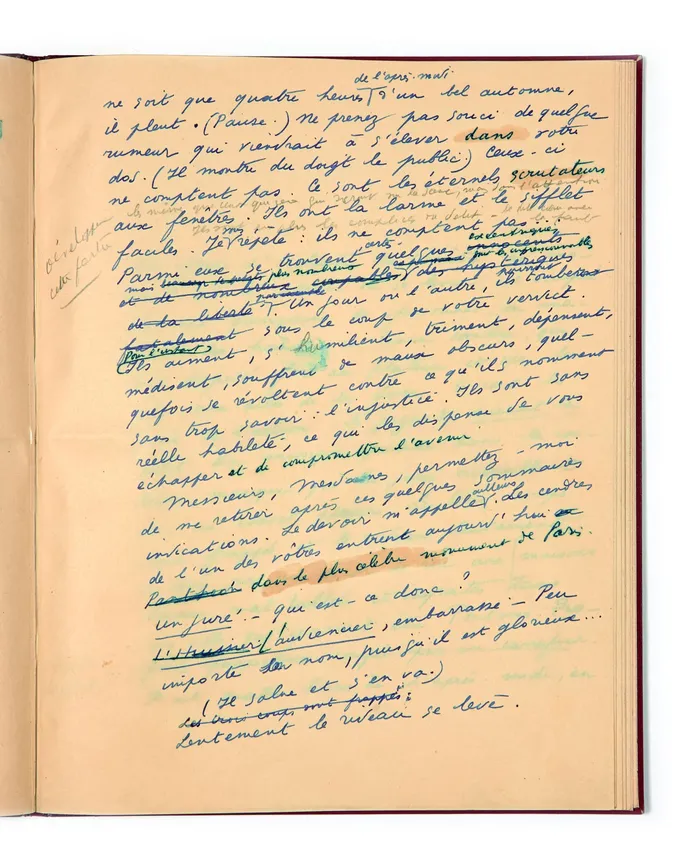 de l'après-midi
ne soit que quatre heures d'un bel automne,
il pleut. (Pause.) Ne prenez pas souci de quelque
rumeur qui viendrait à s'élever dans votre
dos. (Il montre du doigt le public) Ceux-ci
ne comptent pas. Ce sont les éternels scrutateurs
aux fenêtres. Ils ont la larme et le sifflet
faciles. Je répète : ils ne comptent pas...
Parmi eux se trouvent certes quelques excentriques innocents
mais plus nombreux pour les impressionnables
et de nombreux coupables, des hystériques
de la liberté. Un jour ou l'autre, ils tomberont
fatalement sous le coup de votre verdict.
(Pour l'instant)
Ils aiment, s'humilient, triment, dépensent,
médisent, souffrent de maux obscurs, quel-
quefois se révoltent contre ce qu'ils nomment
sans trop savoir : l'injustice. Ils sont sans
réelle habileté, ce qui les dispense de vous
échapper et de compromettre l'avenir.
Messieurs, Mesdames, permettez-moi
de me retirer après ces quelques sommaires
indications. Le devoir m'appelle ailleurs. Les cendres
de l'un des vôtres entrent aujourd'hui au
Panthéon dans le plus célèbre monument de Paris.
un juré. — qui est-ce donc ?
L'Huissier l'audiencier, embarrassé — Peu
importe son nom, puisqu'il est glorieux...
(Il salue et s'en va.)
Les trois coups sont frappés :
Lentement le rideau se lève.